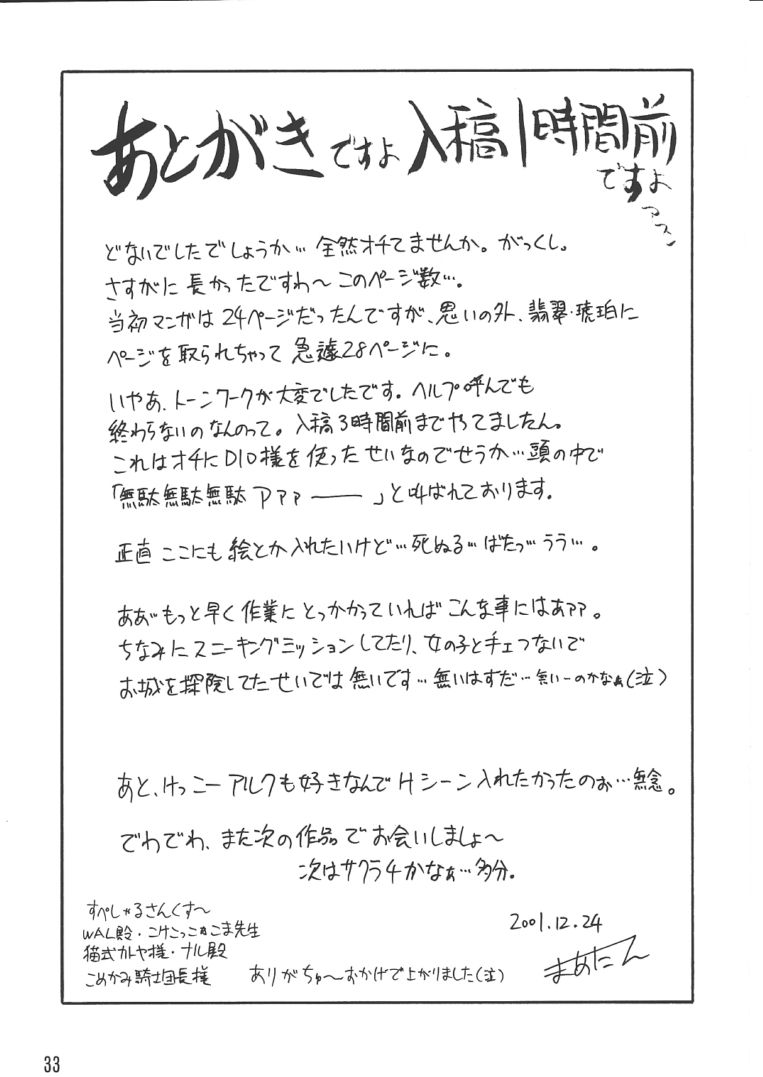 あとがきですよ 入稿1時間前
ですよ
どないでしたでしょうか… 全然オチてませんか。がっくし。
さすがに長かったですわ〜このページ数…。
当初マンガは24ページだったんですが、思いの外、翡翠・琥珀に
ページを取られちゃって急遽28ページに。
いやあ、トーンワークが大変でしたです。ヘルプ呼んでも
終わらないのなんのって。入稿3時間前までやってましたん。
これはオチにDIO様を使ったせいなのでせうか…頭の中で
「無駄無駄無駄アァァ――」と叫ばれております。
正直ここにも絵とか入れたいけど…死ぬる…ばたっ…うう…。
ああ゛もっと早く作業にとっかかっていればこんな事にはあァァ。
ちなみにスニーキングミッションしてたり、女の子とチェつないで
お城を探険してたせいでは無いです…無いはずだ…無いーのかなぁ(泣)
あと、けっこーアルクも好きなんでHシーン入れたかったのぉ…無念。
でわでわ、また次の作品でお会いしましょ〜
次はサクラ4かなぁ…多分。
すぺしゃるさんくす〜
WAL殿・こけこっこぉこま先生
猫式カトヤ様・ナル殿
こめかみ騎士団長様 ありがちゅ〜おかげで上がりました(泣)
2001.12.24
まあたん
33